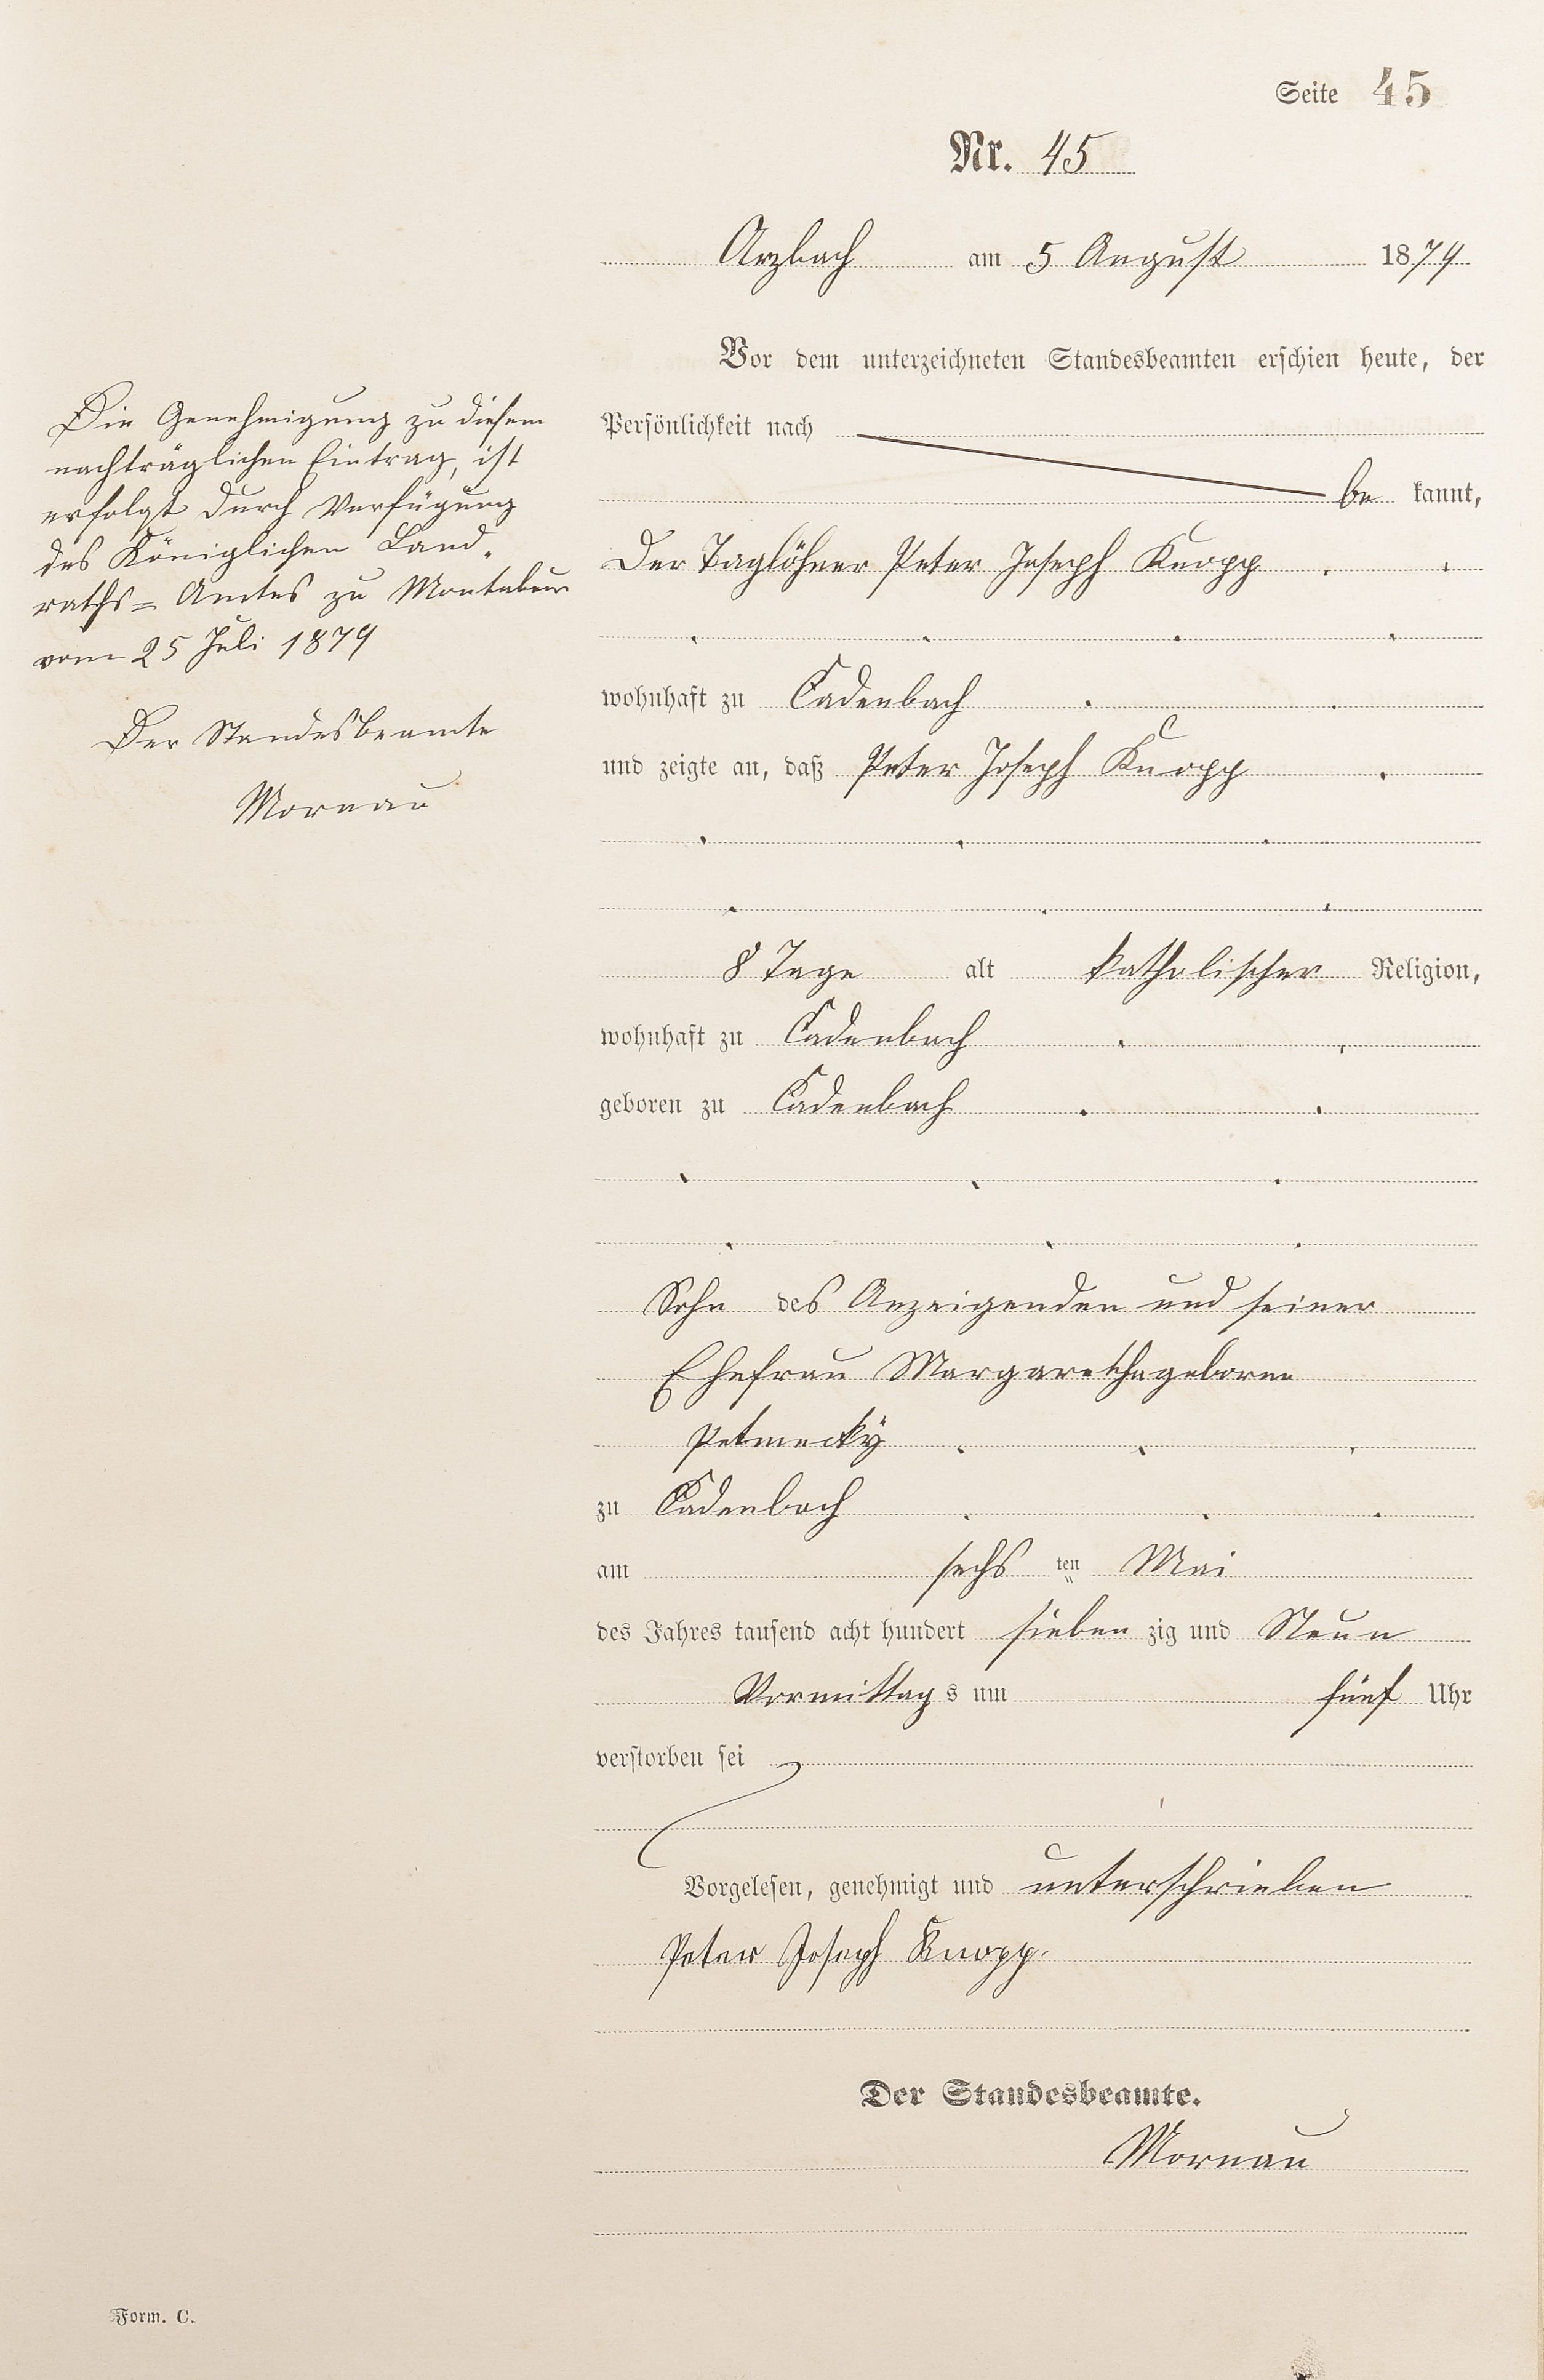 Seite 45
Nr. 45
Arzbach am 5 August 1879
Vor dem unterzeichneten Standesbeamten erschien heute, der
Persönlichkeit nach
be kannt,
Der Taglöhner Peter Joseph Knopp
wohnhaft zu Cadenbach
und zeigte an, daß Peter Joseph Knopp
8 Tage alt katholischer Religion,
wohnhaft zu Cadenbach
geboren zu Cadenbach
Sohn des Anzeigenden und seiner
Ehefrau Margarethe geborne
Petmecky
zu Cadenbach
am sechs ten Mai
des Jahres tausend acht hundert sieben zig und Neun
Vormittag s um fünf Uhr
verstorben sei
Vorgelesen, genehmigt und unterschrieben
Peter Joseph Knopp.
Der Standesbeamte.
Mornau
Die Genehmigung zu diesem
nachträglichen Eintrag, ist
erfolgt durch Verfügung
des Königlichen Land-
raths= Amtes zu Montabaur
vom 25 Juli 1879
Der Standesbeamte
Mornau
Form. C.